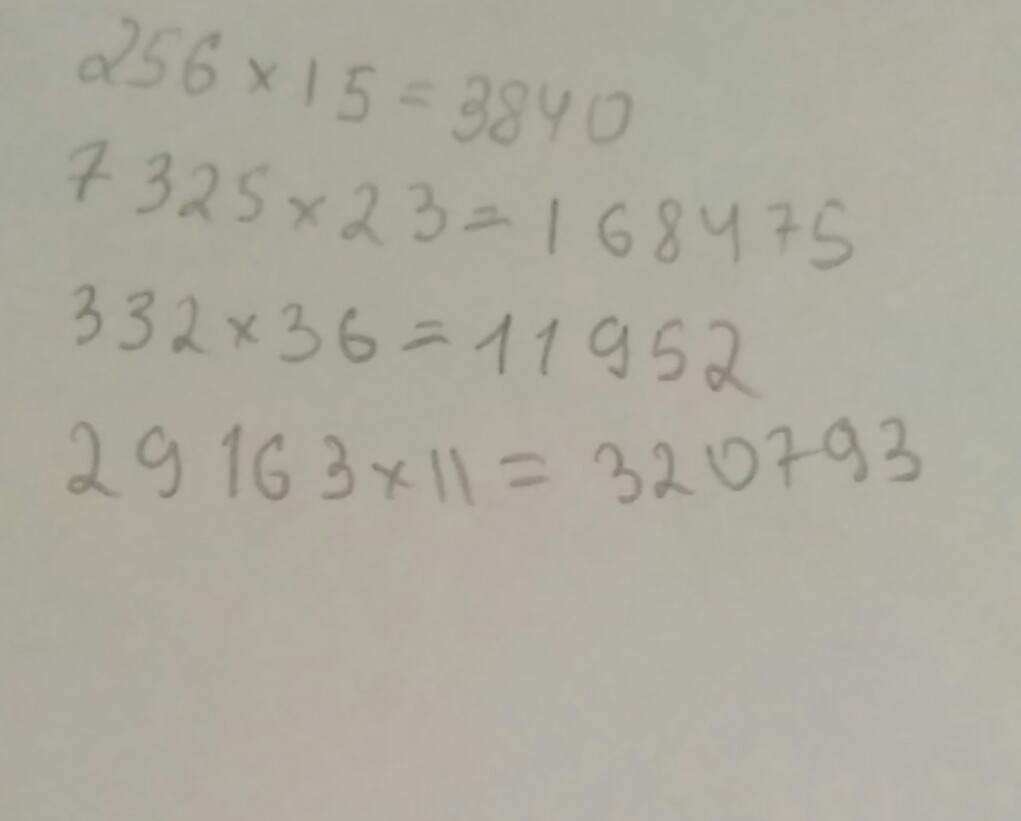 256 × 15 = 3840
7325 × 23 = 168475
332 × 36 = 11952
29163 × 11 = 320793